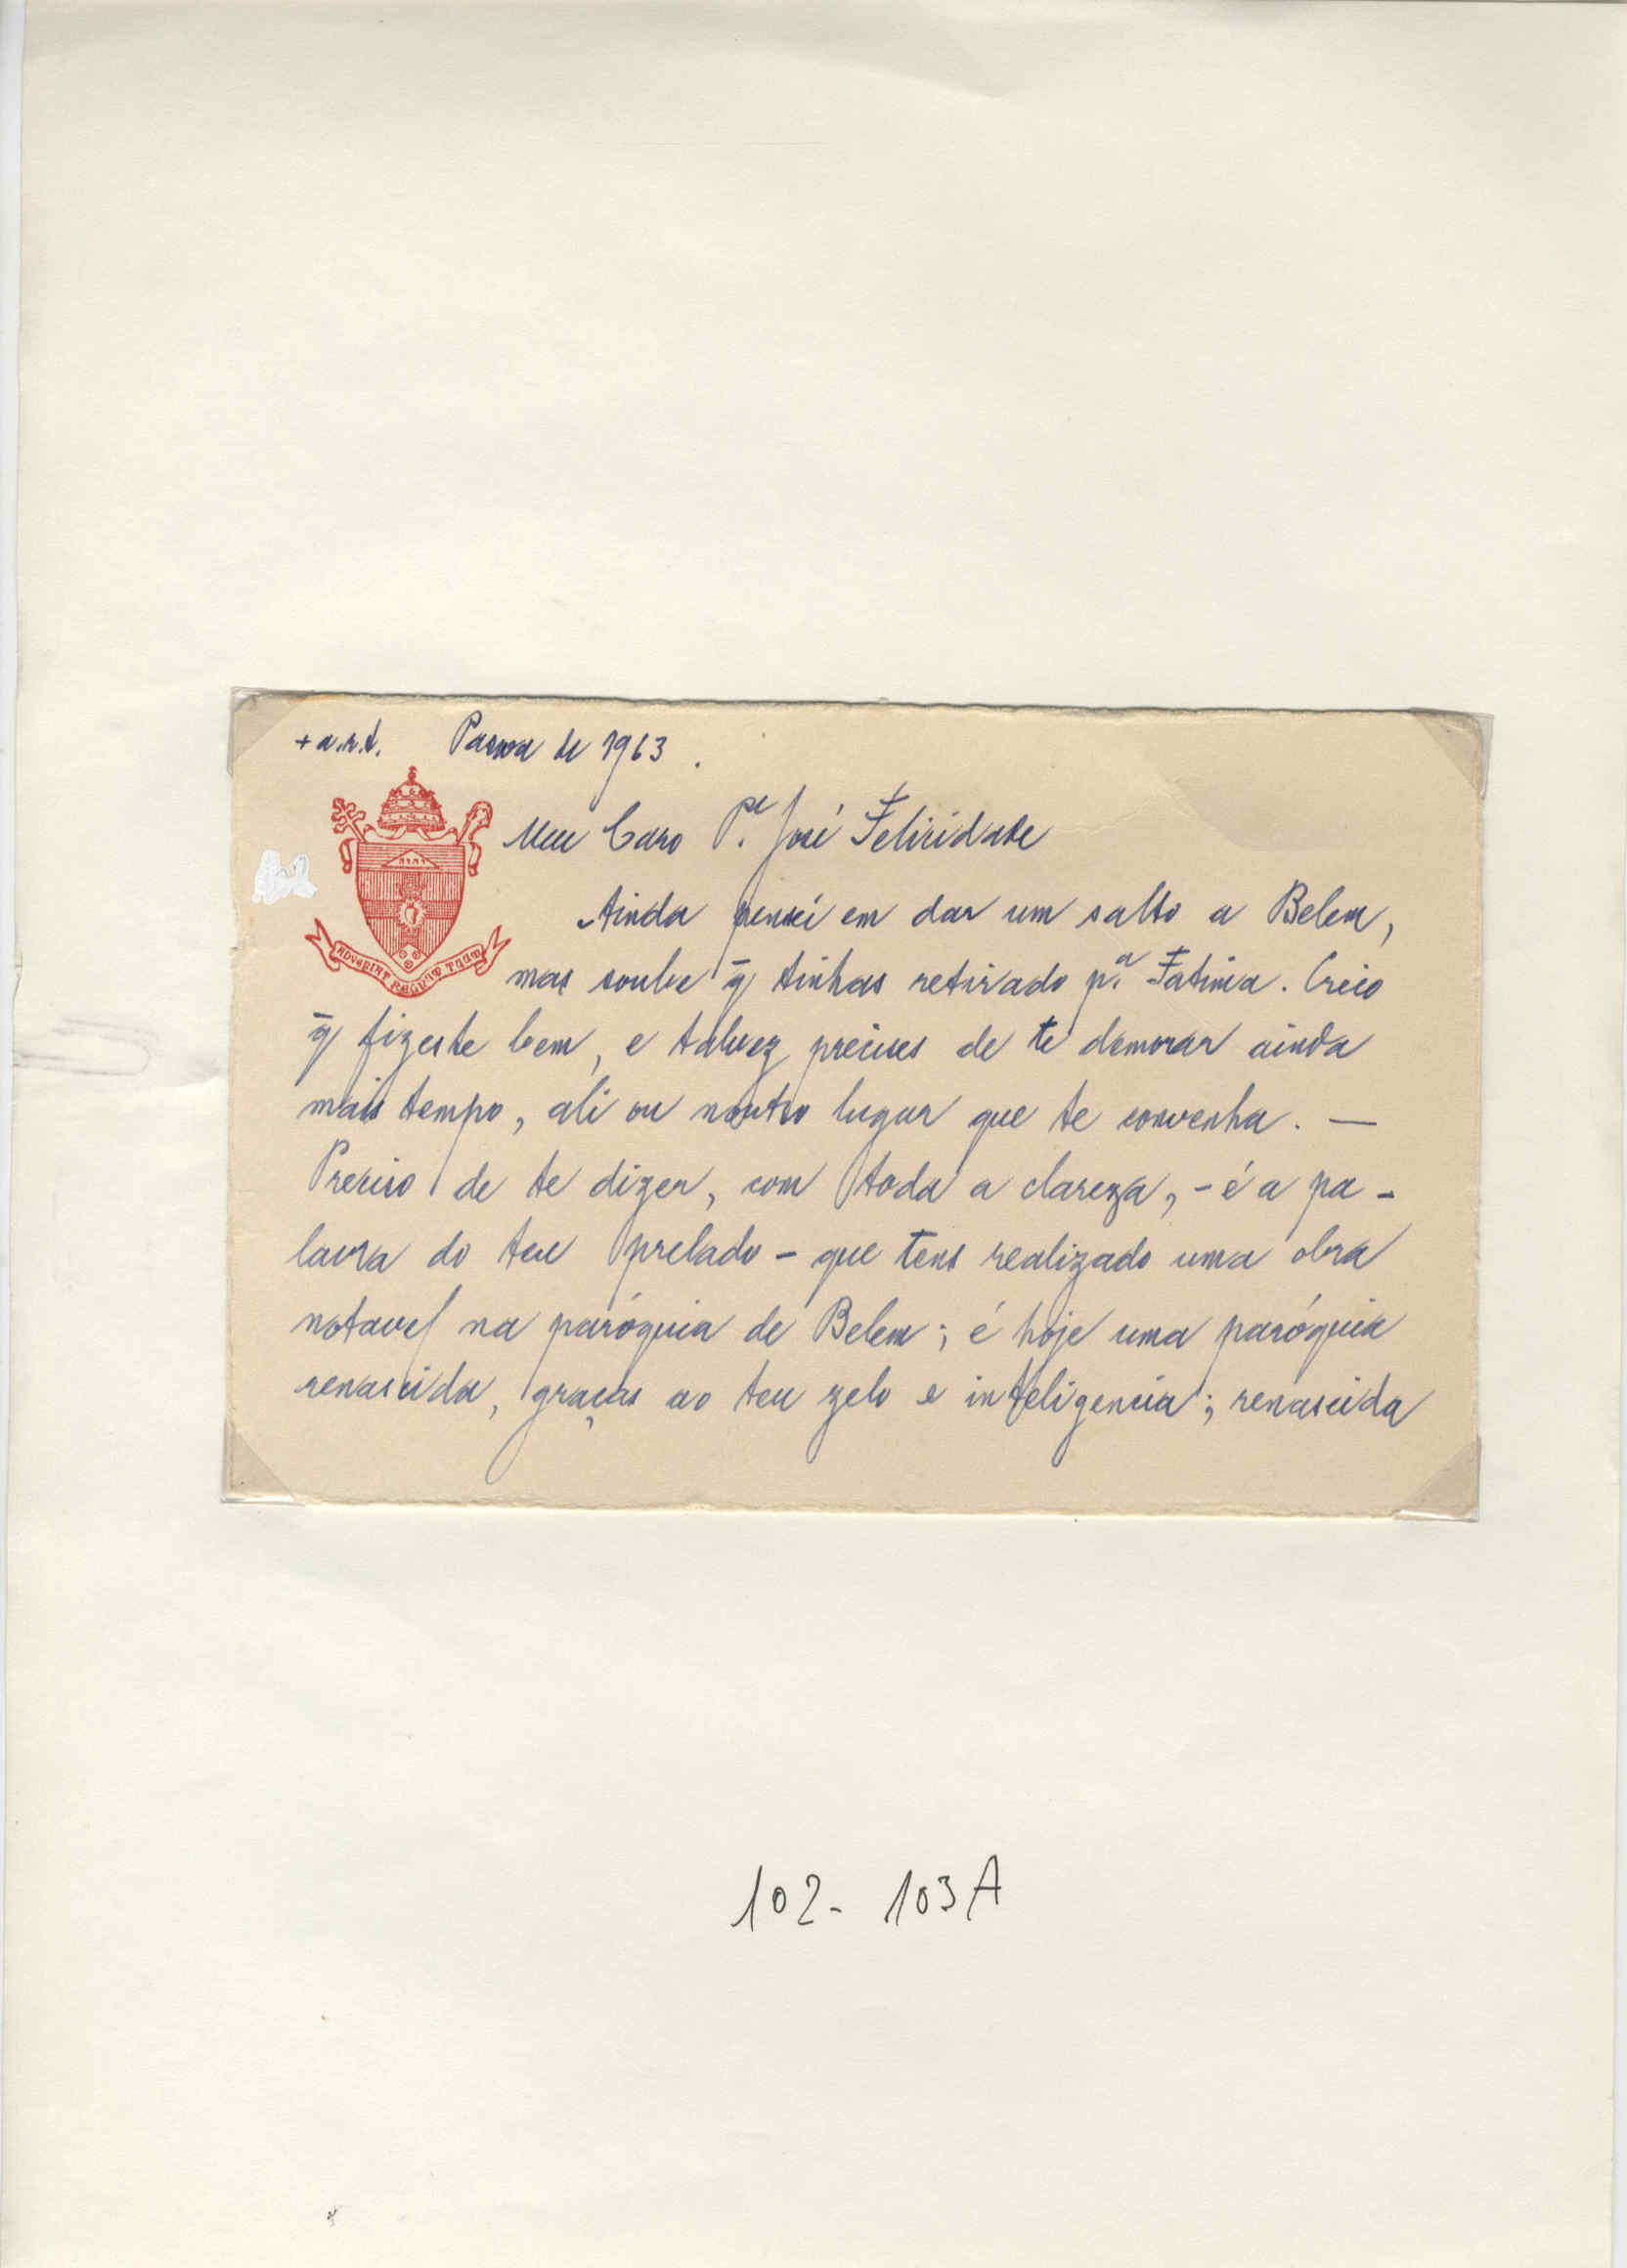 + a.r.t. Pascoa de 1963.
Meu Caro P.e José Felicidade
Ainda pensei em dar um salto a Belem,
mas soube q̄ tinhas retirado p.a Fatima. Creio
q̄ fizeste bem, e talvez precises de te demorar ainda
mais tempo, ali ou noutro lugar que te convenha. —
Preciso de te dizer, com toda a clareza, - é a pa-
lavra do teu prelado - que tens realizado uma obra
notavel na paróquia de Belem; é hoje uma paróquia
renascida, graças ao teu zelo e inteligencia; renascida
ADVENIAT REGNUM TUUM
102- 103A